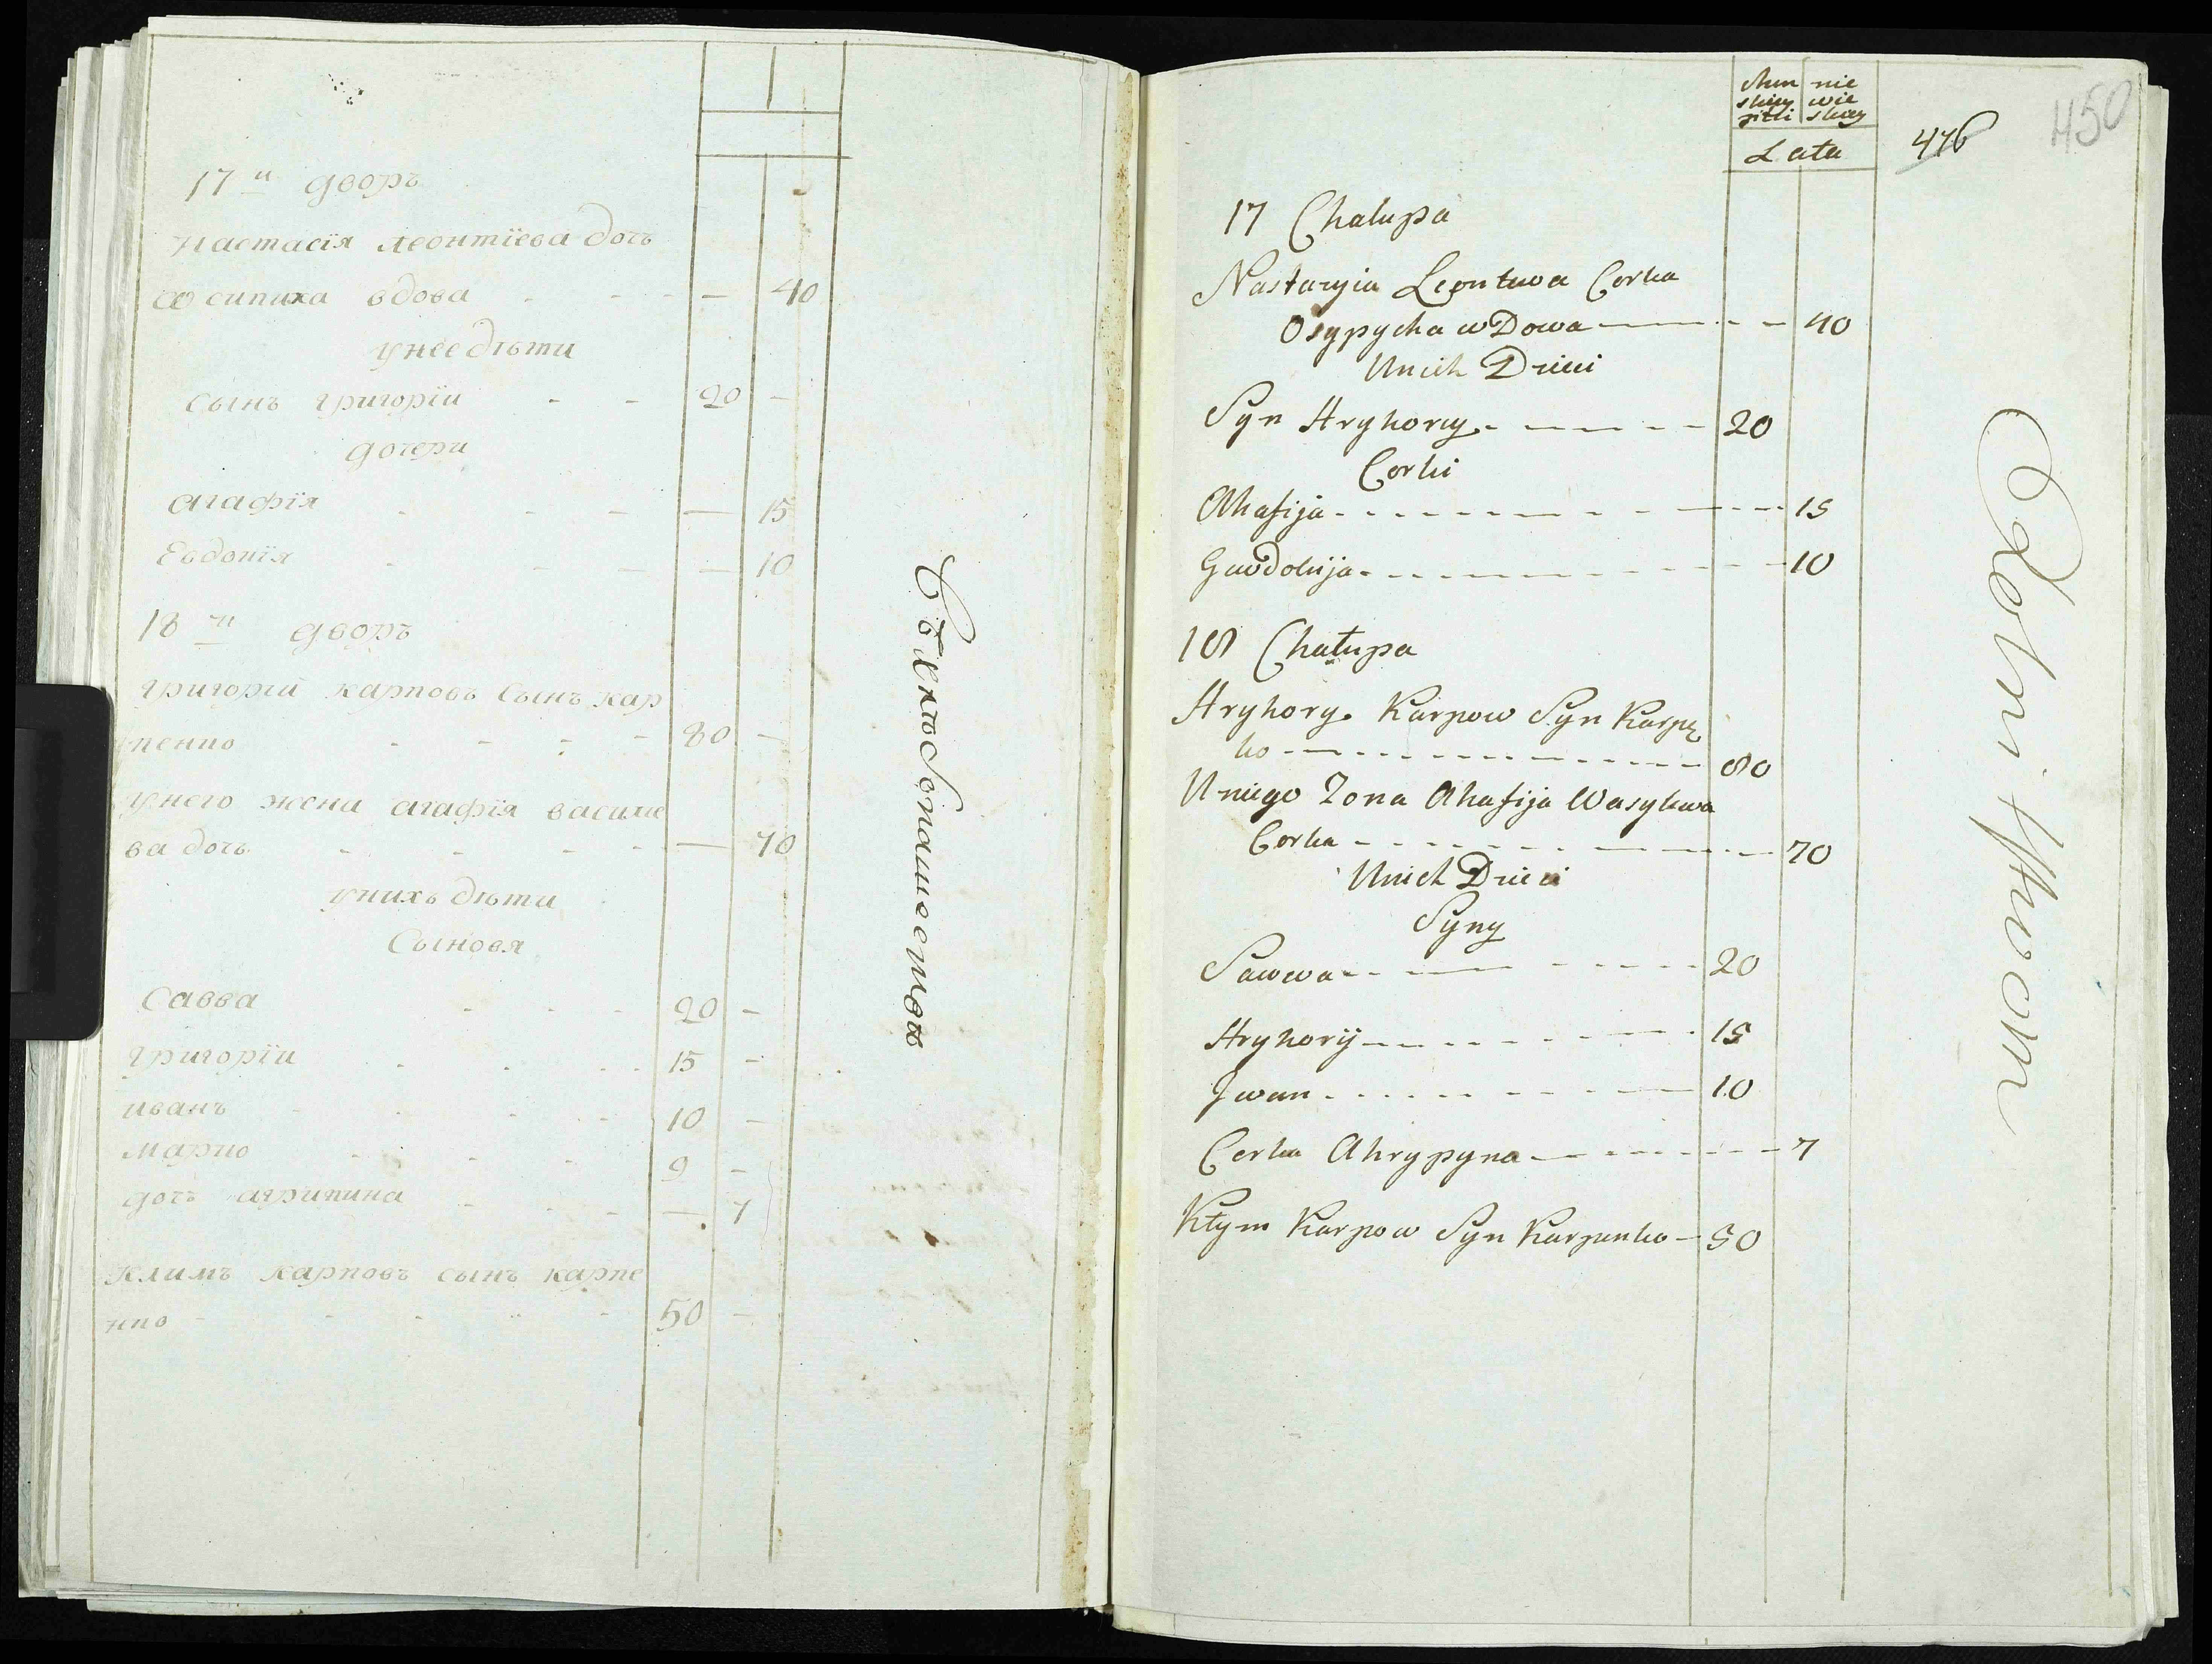 17 й дворъ
Настасія леонтіева дочь
осипиха вдова - - - 40
у нее дѣти
сынъ григоріи - - 20 -
дочери
агафія - - - 15
Евдокія - - - 10
18 й дворъ
григорій карповъ сынъ кар
пенко - - - - 80 -
у него жена агафія василие
ва дочь - - - - 70
у нихъ дѣти
Сыновя
Савва - - - 20 -
григоріи - - - 15 -
иванъ - - - 10 -
марко - - - 9 -
дочь агрипина - - - 7
климъ карповъ сынъ карпе
нко - - - - 50 -
476
450
nie
wie
Lata
17 Chalupa
Nastazyia Leontwa Corka
Osypycha wDowa - - - 40
Unich Dzieci
Syn Hryhory - - - 20
Corki
Ahafija - - - 15
Jawdokija - - - 10
18 Chałupa
Hryhory Karpow Syn Karpę
ko - - - 80
Uniego Zona Ahafija Wasylewa
Corka - - - 70
Unich Dzieci
Syny
Sawwa - - - 20
Hryhorij - - - 15
Jwan - - - 10
Corka Ahrypyna - - - 7
Kłym Karpow Syn Karpenko - 50